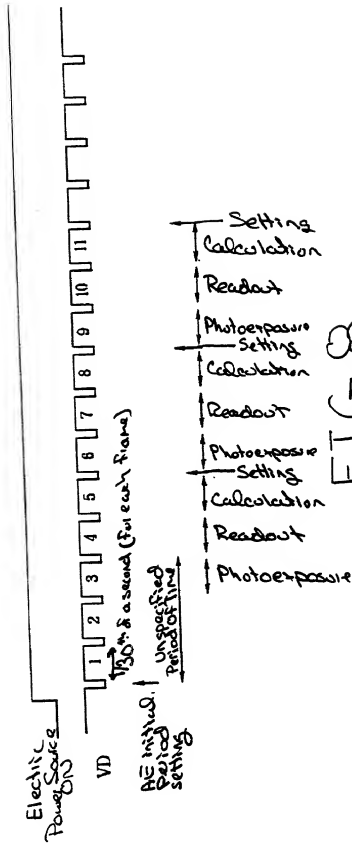 Electric
Power Source
ON
VD
1 2 3 4 5 6 7 8 9 10 11
1/30th of a second (for each frame)
AE initial
Period
setting
Unspecified
Period of Time
Photoexposure
Readout
Calculation
Setting
Photoexposure
Readout
Calculation
Setting
Photoexposure
Readout
Calculation
Setting
FIG 8